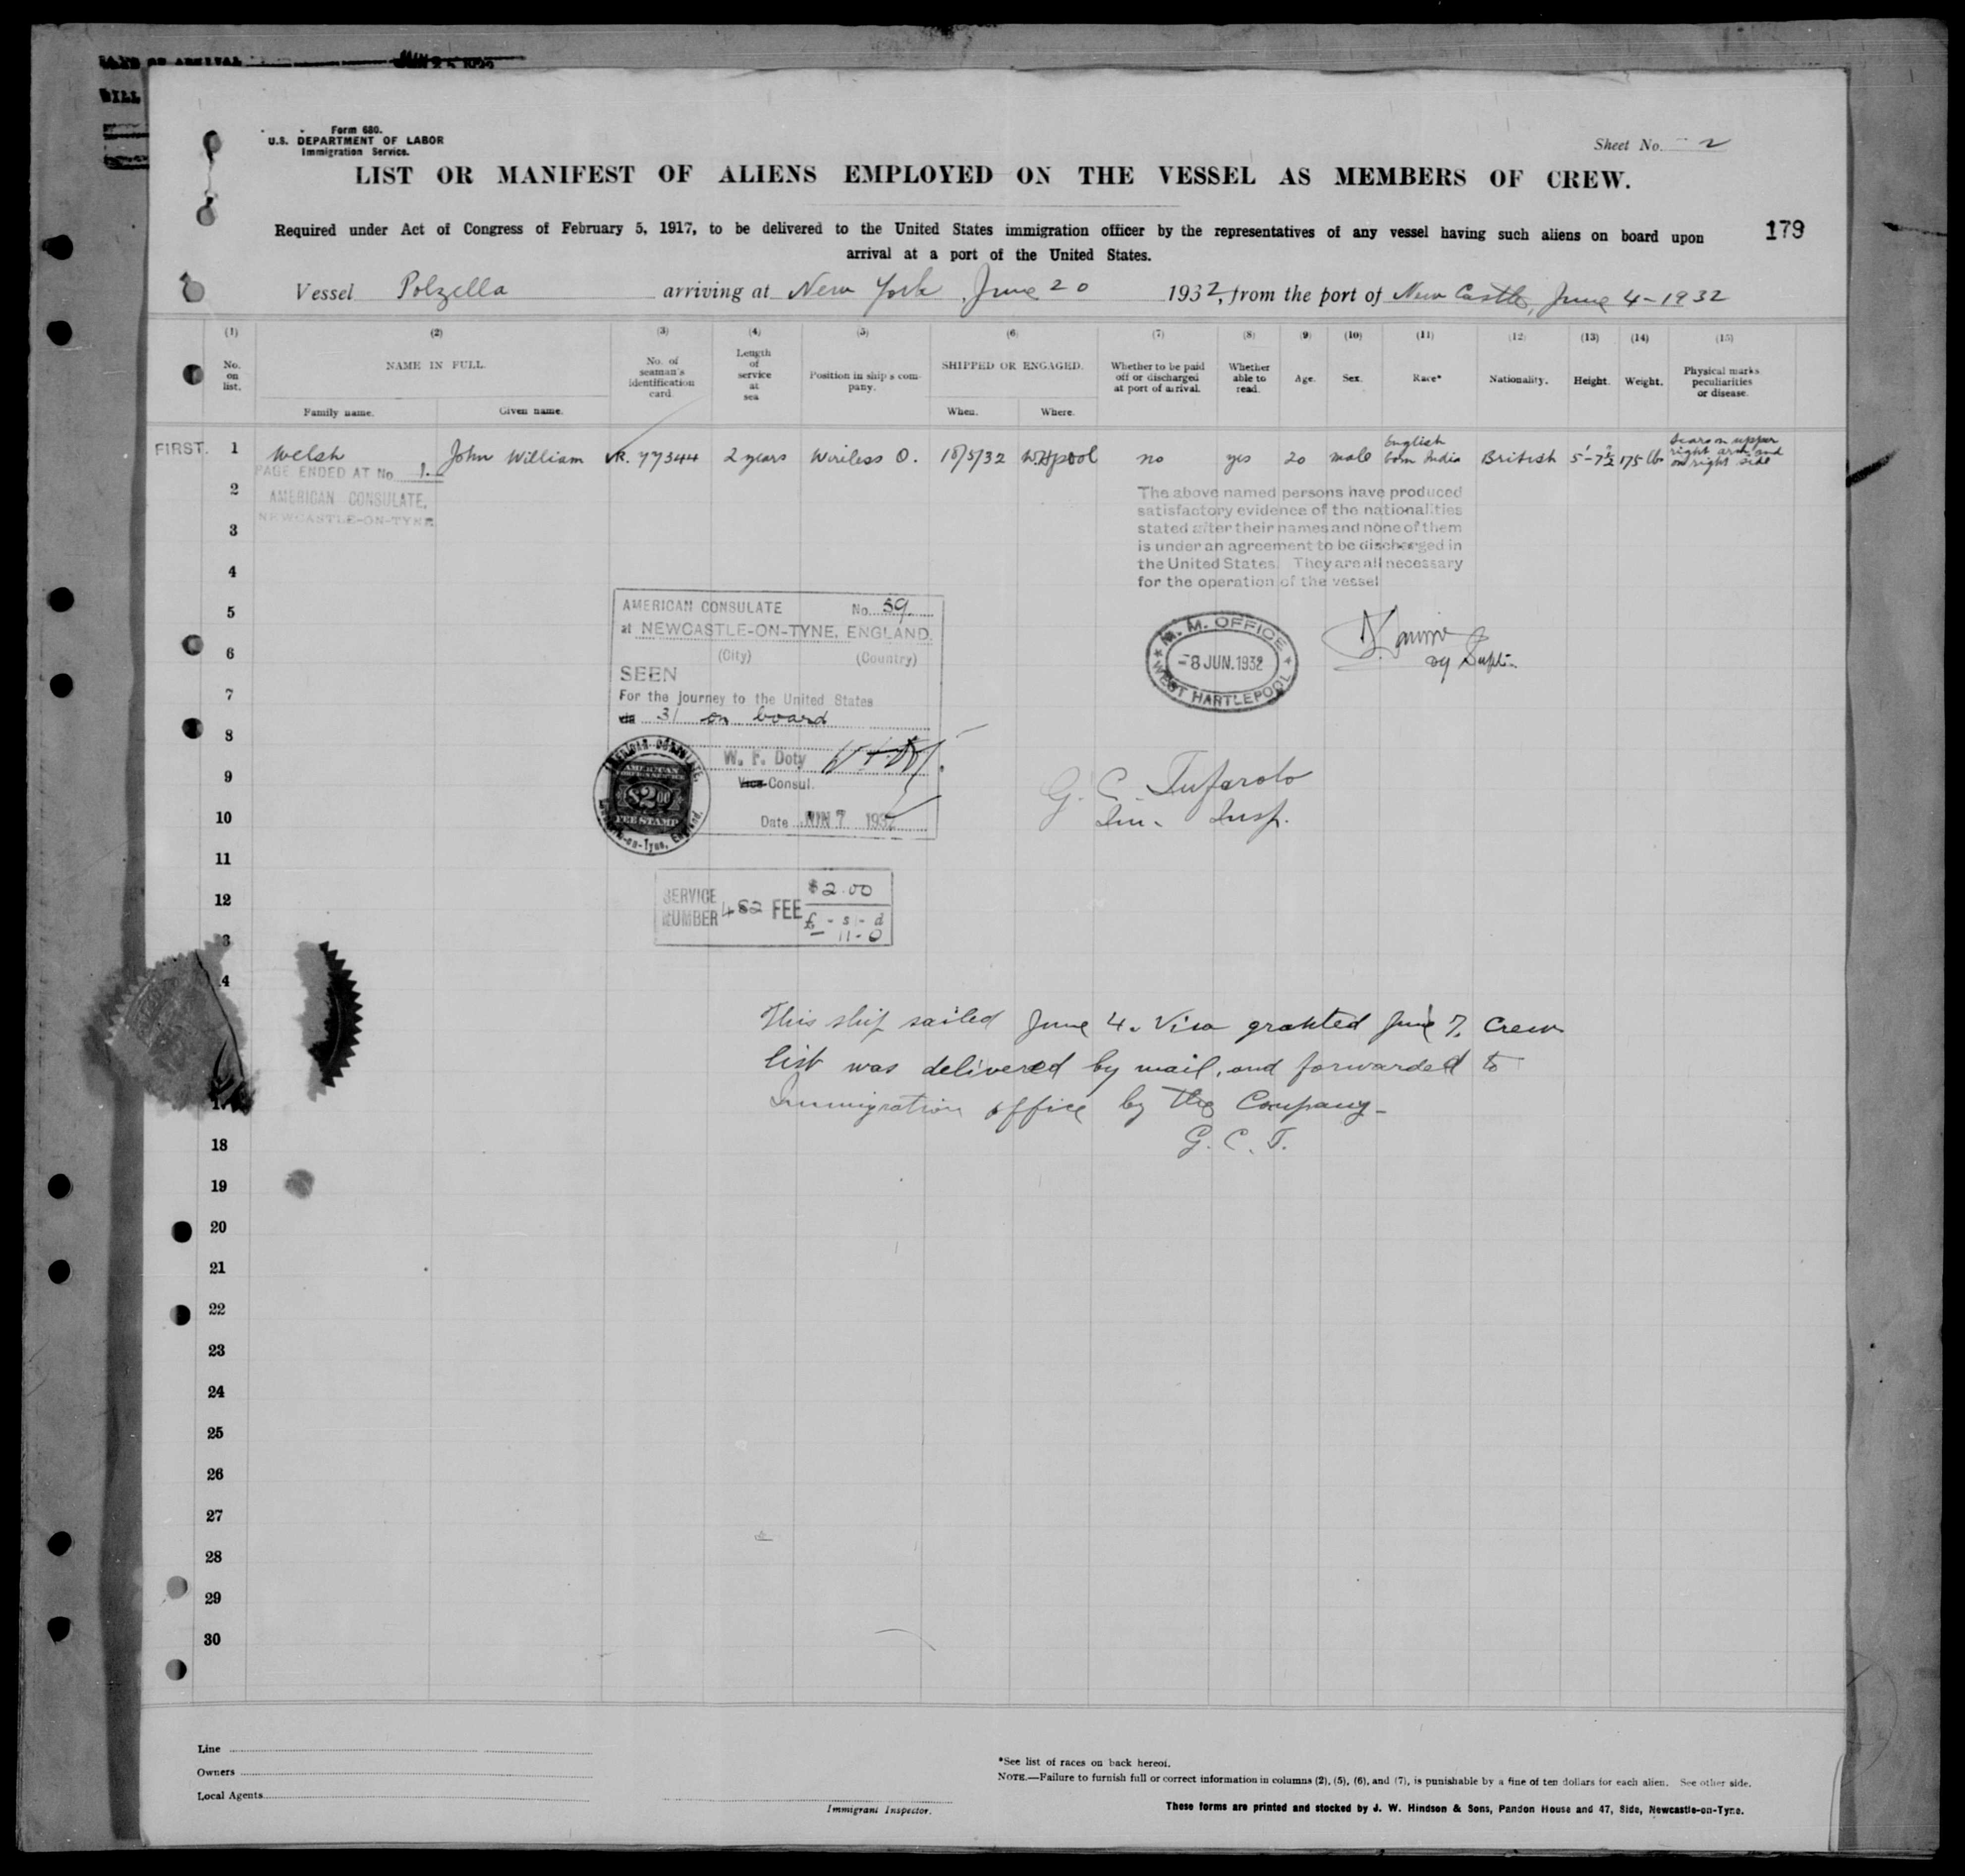 Form 680.
U.S. DEPARTMENT OF LABOR
Immigration Service.
Sheet No. 2
LIST OR MANIFEST OF ALIENS EMPLOYED ON THE VESSEL AS MEMBERS OF CREW.
Required under Act of Congress of February 5, 1917, to be delivered to the United States immigration officer by the representatives of any vessel having such aliens on board upon
arrival at a port of the United States.
179
Vessel Polzella arriving at New York, June 20 1932, from the port of New Castle, June 4-1932
(1) (2) (3) (4) (5) (6) (7) (8) (9) (10) (11) (12) (13) (14) (15)
No. on list.
NAME IN FULL.
Family name. Given name.
No. of seaman's identification card.
Length of service at sea
Position in ship's company.
SHIPPED OR ENGAGED.
When. Where.
Whether to be paid off or discharged at port of arrival.
Whether able to read.
Age.
Sex.
Race*
Nationality.
Height.
Weight.
Physical marks, peculiarities or disease.
FIRST. 1 Welsh John William 77344 2 years Wireless O. 18/5/32 W.H'pool no yes 20 male English born India British 5'-7½ 175 lbs Scars on upper right arm and on right side
PAGE ENDED AT No. 1.
AMERICAN CONSULATE,
NEWCASTLE-ON-TYNE
The above named persons have produced
satisfactory evidence of the nationalities
stated after their names and none of them
is under an agreement to be discharged in
the United States. They are all necessary
for the operation of the vessel
2
3
4
5
6
7
8
9
10
11
12
AMERICAN CONSULATE No. 59.
at NEWCASTLE-ON-TYNE, ENGLAND.
(City) (Country)
SEEN
For the journey to the United States
via 31 on board
W. F. Doty
Vice Consul.
Date JUN 7 1932
AMERICAN CONSULATE,
AMERICAN
FOREIGN SERVICE
$2.00
FEE STAMP
M. M. OFFICE
-8 JUN. 1932
WEST HARTLEPOOL
G. C. Tufarolo
Im. Insp.
SERVICE NUMBER 482 FEE $2.00
£ - s - d
- 11 - 0
This ship sailed June 4. Visa granted June 7. Crew
list was delivered by mail, and forwarded to
Immigration office by the Company-
G. C. T.
18
19
20
21
22
23
24
25
26
27
28
29
30
Line
Owners
Local Agents
Immigrant Inspector.
*See list of races on back hereof.
NOTE.—Failure to furnish full or correct information in columns (2), (5), (6), and (7), is punishable by a fine of ten dollars for each alien. See other side.
These forms are printed and stocked by J. W. Hindson & Sons, Pandon House and 47, Side, Newcastle-on-Tyne.